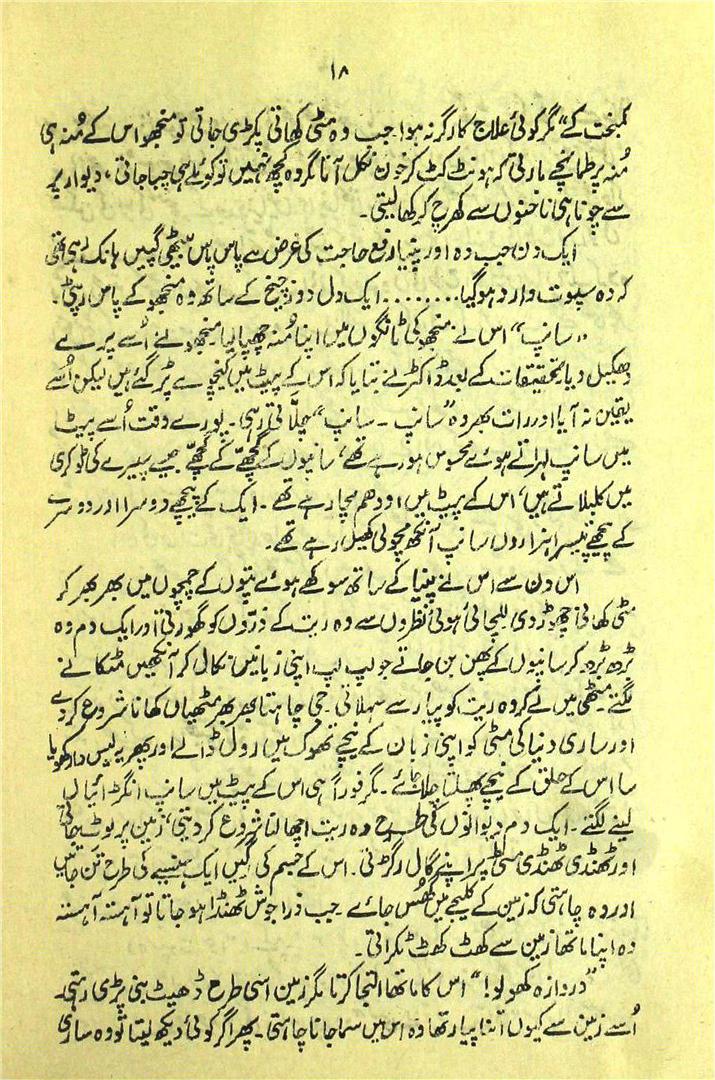 ۱۸
کمبخت کے“ مگر کوئی علاج کارگر نہ ہوا۔ جب وہ مٹی کھاتی پکڑی جاتی تو منجھو اس کے مُنہ ہی
مُنہ پر طمانچے مارتی کہ ہونٹ کٹ کر خون نکل آتا مگر وہ کچھ نہیں تو کوئلے ہی چبا جاتی، دیوار پر
سے چونا ہی ناخنوں سے کھرچ کر کھا لیتی۔
ایک دن جب وہ اور پنیا رفع حاجت کی غرض سے پاس پاس بیٹھی گپیں ہانک رہی تھی
کہ وہ سپوت وارد ہوگیا........ ایک دل دوز چیخ کے ساتھ وہ منجھو کے پاس رپٹی۔
”سانپ“ اس نے منجھو کی ٹانگوں میں اپنا مُنہ چھپا لیا۔ منجھو نے اُسے پرے
دھکیل دیا۔ تحقیقات کے بعد ڈاکٹر نے بتایا کہ اس کے پیٹ میں کینچوے پڑ گئے ہیں لیکن اُسے
یقین نہ آیا اور رات بھر وہ ”سانپ ۔ سانپ“ چلّاتی رہی۔ پورے وقت اُسے پیٹ
میں سانپ لہراتے ہوئے محسوس ہو رہے تھے، سانپوں کے گچھے کے گچھے جیسے سپیرے کی ٹوکری
میں کلبلاتے ہیں، اس کے پیٹ میں اودھم مچا رہے تھے۔ ایک کے پیچھے دوسرا اور دوسرے
کے پیچھے تیسرا ہزاروں سانپ آنکھ مچولی کھیل رہے تھے۔
اس دن سے اس نے پنیا کے ساتھ سوکھے ہوئے پتوں کے چمچوں میں بھر بھر کر
مٹی کھانی چھوڑ دی للچائی ہوئی نظروں سے وہ ریت کے ذرّوں کو گھورتی اور ایک دم وہ
بڑھ بڑھ کر سانپوں کے پھن بن جاتے جو لپ لپ اپنی زبانیں نکال کر آنکھیں مٹکانے
لگتے۔ مٹھی میں لے کر وہ ریت کو پیار سے سہلاتی۔ جی چاہتا بھر بھر مٹھیاں کھانا شروع کر دے
اور ساری دنیا کی مٹی کو اپنی زبان کے نیچے تھوک میں رول ڈالے اور پھر یہ لیس دار کھویا
سا اس کے حلق کے نیچے پھسلتا چلا جائے۔ مگر فوراً ہی اس کے پیٹ میں سانپ انگڑائیاں
لینے لگتے۔ ایک دم دیوانوں کی طرح وہ ریت اچھالنا شروع کر دیتی، زمین پر لوٹ جاتی
اور ٹھنڈی ٹھنڈی مٹی پر اپنے گال رگڑتی۔ اس کے جسم کی رگیں ایک ہنسیے کی طرح تن جاتیں
اور وہ چاہتی کہ زمین کے کلیجے میں گھُس جائے۔ جب ذرا جوش ٹھنڈا ہو جاتا تو آہستہ آہستہ
وہ اپنا ماتھا زمین سے کھٹ کھٹ ٹکراتی۔
”دروازہ کھولو!“ اس کا ماتھا التجا کرتا مگر زمین اسی طرح ڈھیٹ بنی پڑی رہتی۔
اُسے زمین سے کیوں اتنا پیار تھا وہ اس میں سما جانا چاہتی۔ پھر اگر کوئی دیکھ لیتا تو وہ ساری